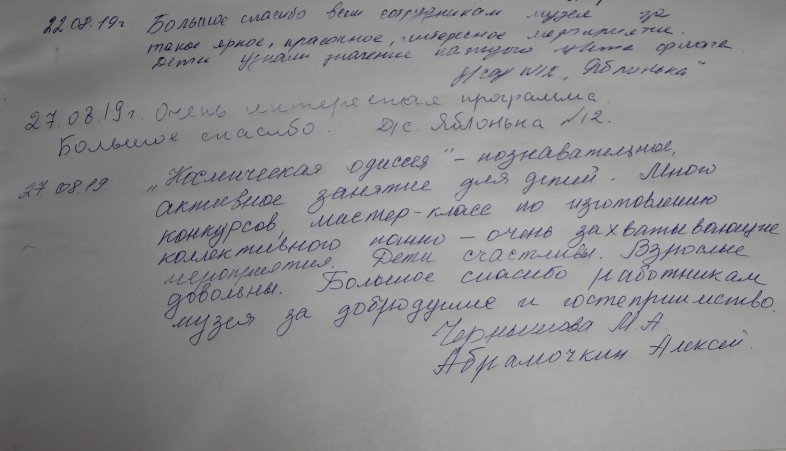 22.08.19г Большое спасибо всем сотрудникам музея за
такое яркое, красочное, интересное мероприятие.
Дети узнали значение каждого цвета флага.
д/сад №12 „Яблонька"
27.08.19г. Очень интересная программа.
Большое спасибо. Д/с. Яблонька №12.
27.08.19. „Космическая одиссея" – познавательное,
активное занятие для детей. Много
конкурсов, мастер-класс по изготовлению
коллективного панно – очень захватывающие
мероприятия. Дети счастливы. Взрослые
довольны. Большое спасибо работникам
музея за добродушие и гостеприимство.
Чернышова М.А.
Абрамочкин Алексей.